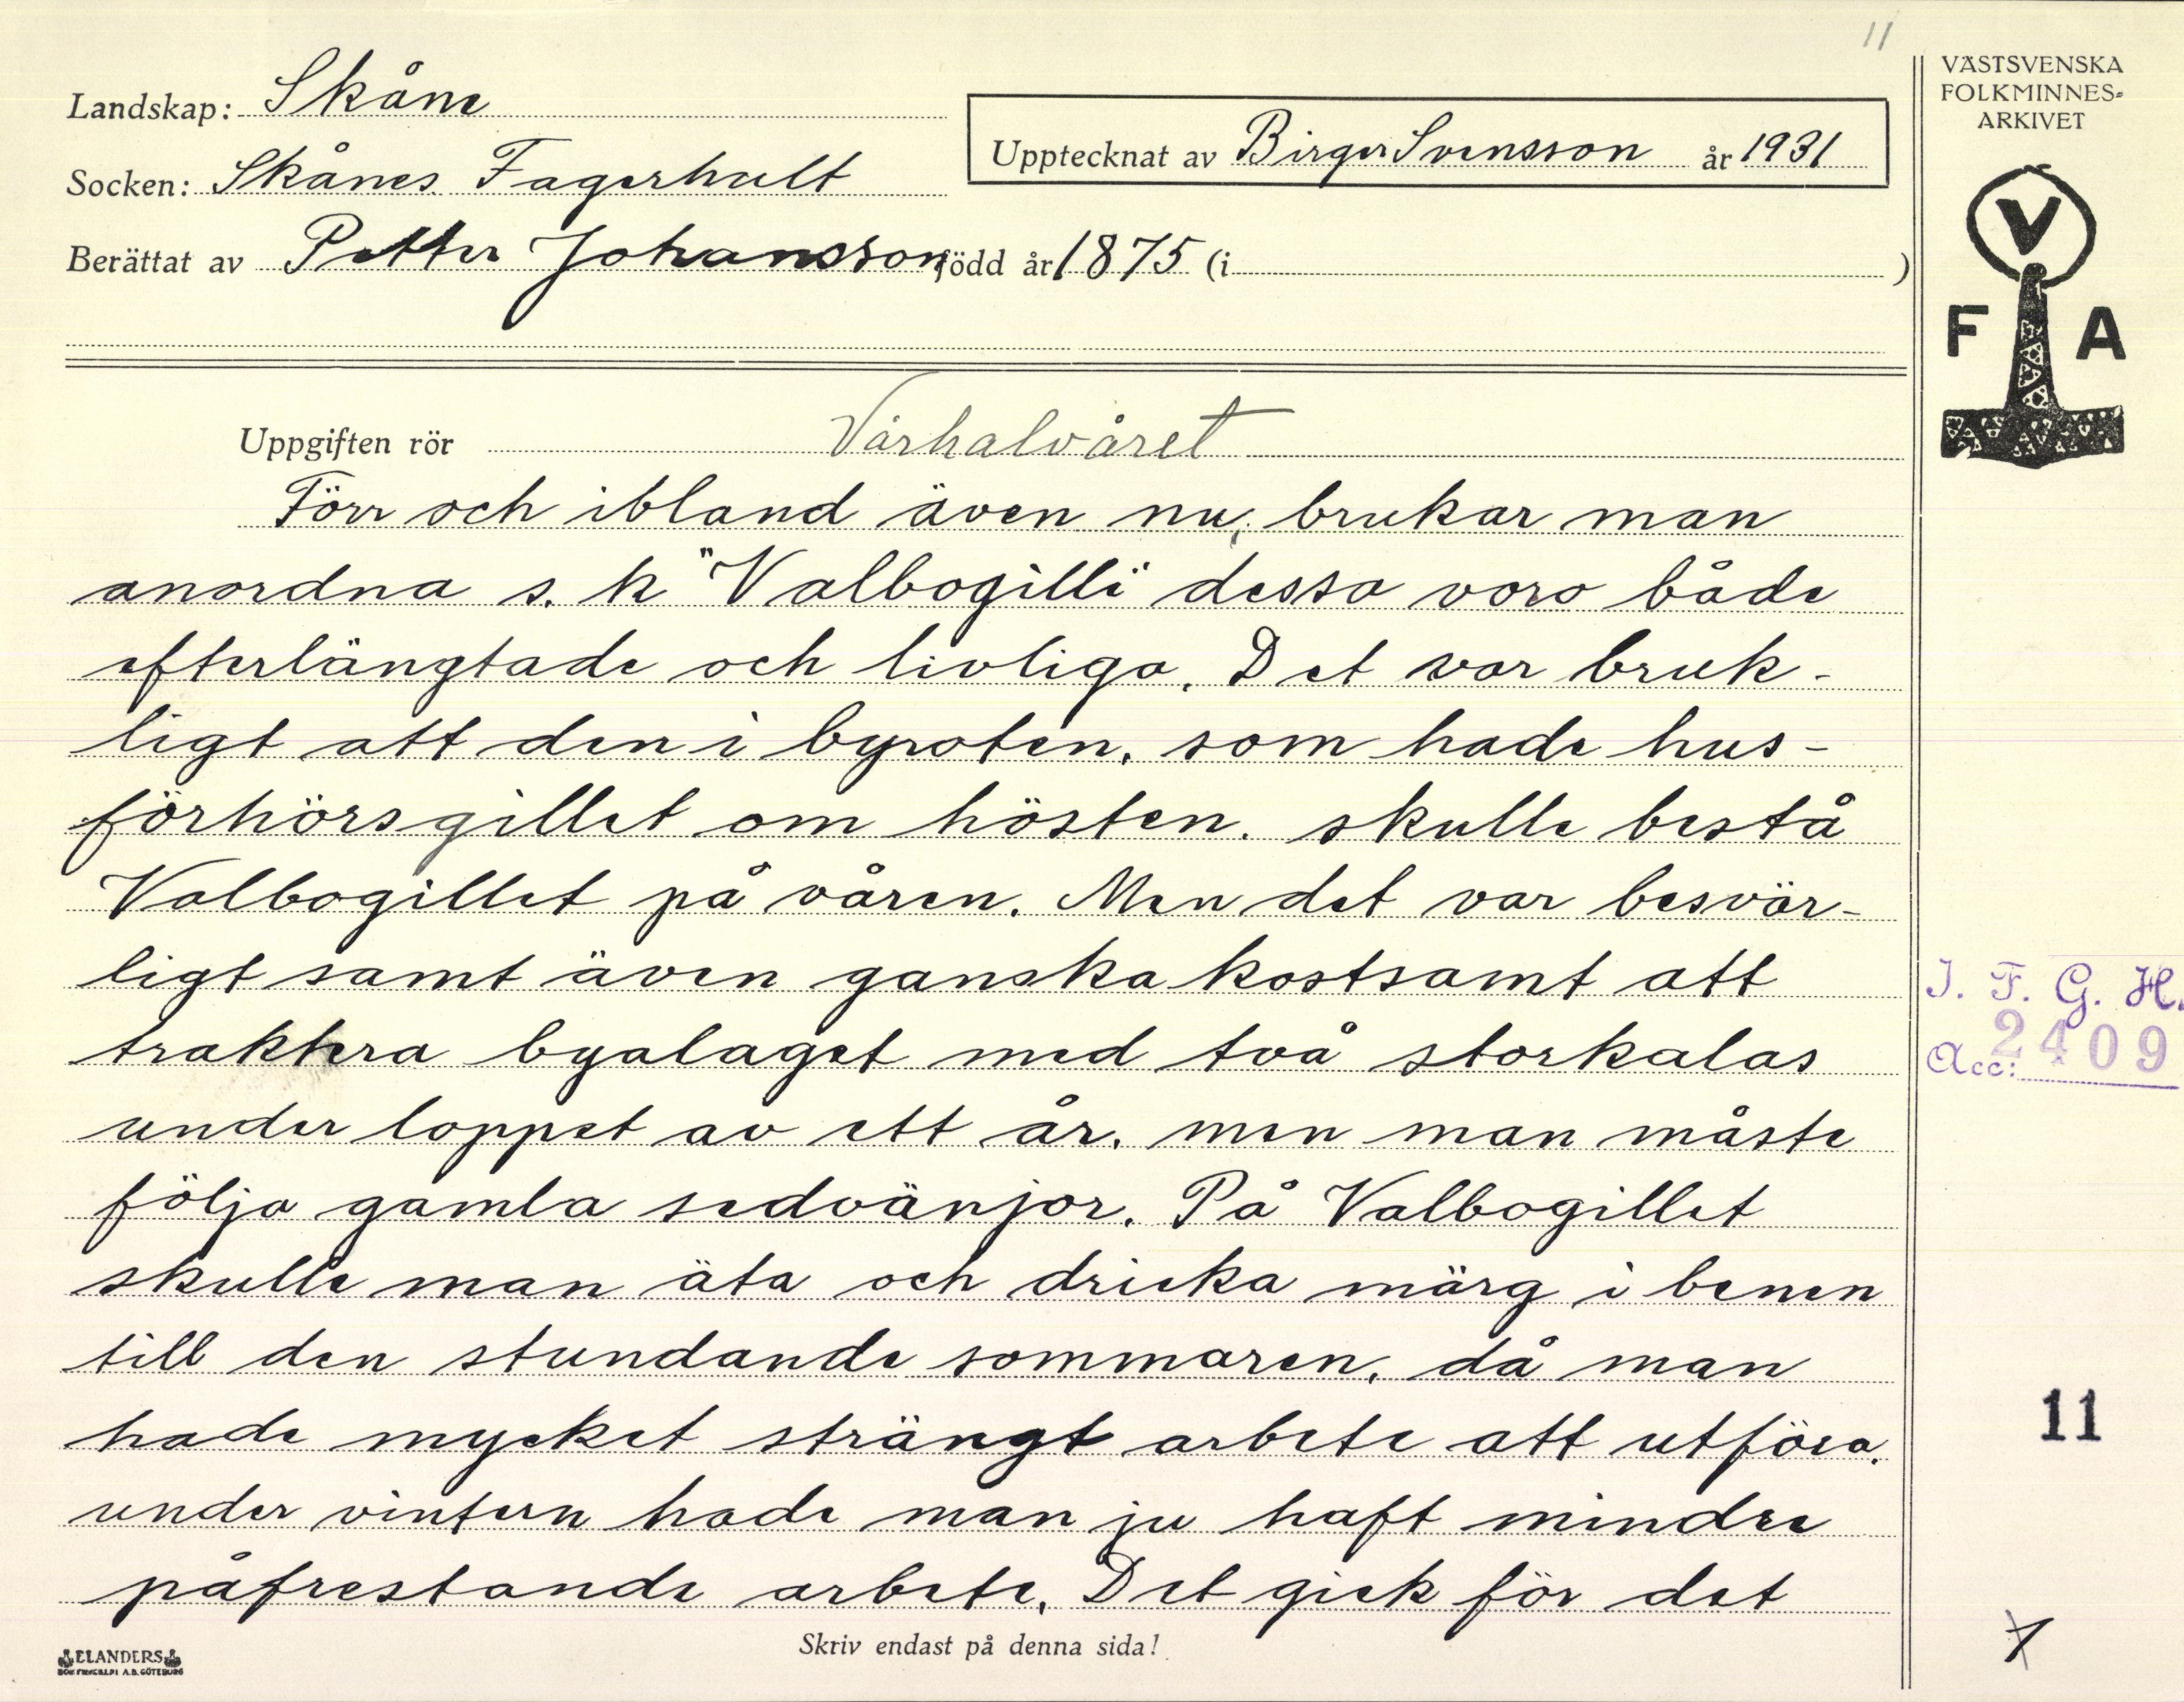 11
VÄSTSVENSKA
FOLKMINNES-
ARKIVET
Landskap: Skåne
Upptecknat av Birger Svensson år 1931
Socken: Skånes Fagerhult
Berättat av Petter Johansson född år 1875 (i )
V
F A
Uppgiften rör Vårhalvåret
Förr och ibland även nu, brukar man
anordna s. k "Valbogille" dessa voro både
efterlängtade och livliga. Det var bruk-
ligt att den i byroten, som hade hus-
förhörsgillet om hösten. skulle bestå
Valbogillet på våren. Men det var besvär-
ligt samt även ganska kostsamt att
traktera byalaget med två storkalas
under loppet av ett år. men man måste
följa gamla sedvänjor. På Valbogillet
skulle man äta och dricka märg i benen
till den stundande sommaren, då man
hade mycket strängt arbete att utföra.
under vintern hade man ju haft mindre
påfrestande arbete. Det gick för det
I. F. G. H.
Acc: 2409
11
Skriv endast på denna sida!
ELANDERS
BOKTRYCKERI A.B. GÖTEBORG